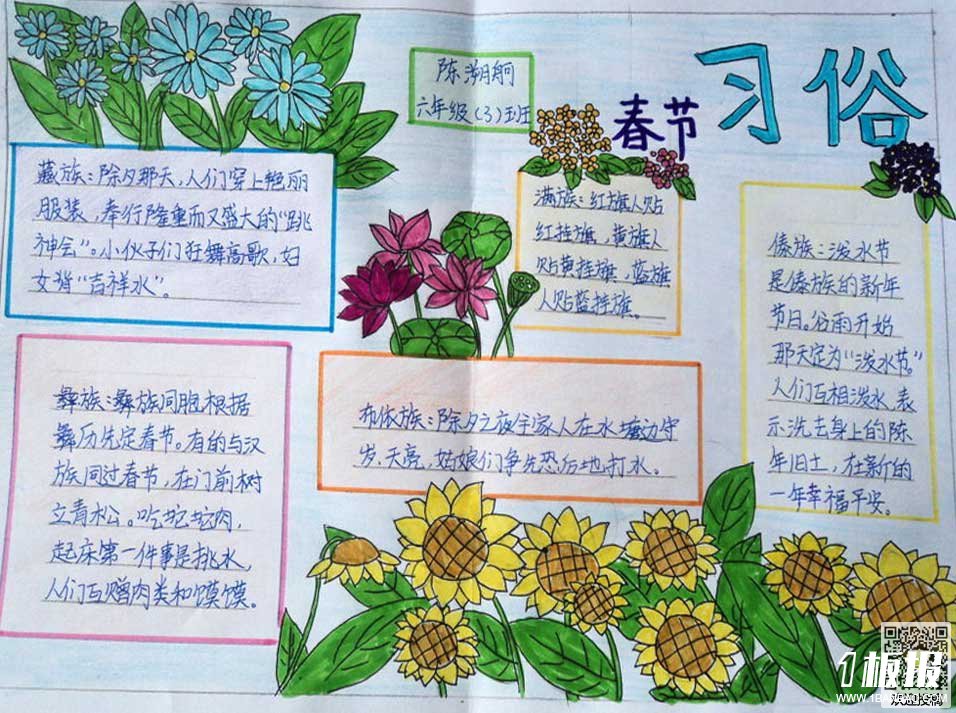 陈溯舸
六年级(3)班
春节 习俗
藏族:除夕那天,人们穿上艳丽
服装,奉行隆重而又盛大的“跳
神会”。小伙子们狂舞高歌,妇
女背“吉祥水”。
满族:红旗人贴
红挂旗,黄旗人
贴黄挂旗,蓝旗
人贴蓝挂旗。
傣族:泼水节
是傣族的新年
节日。谷雨开始
那天定为“泼水节”
人们互相泼水,表
示洗去身上的陈
年旧土,在新的
一年幸福平安。
彝族:彝族同胞根据
彝历先定春节。有的与汉
族同过春节,在门前树
立青松。吃坨坨肉,
起床第一件事是挑水,
人们互赠肉类和馍馍。
布依族:除夕之夜全家人在水塘边守
岁,天亮,姑娘们争先恐后地打水。
板报
WWW.1BANBAO.COM
欢迎投稿